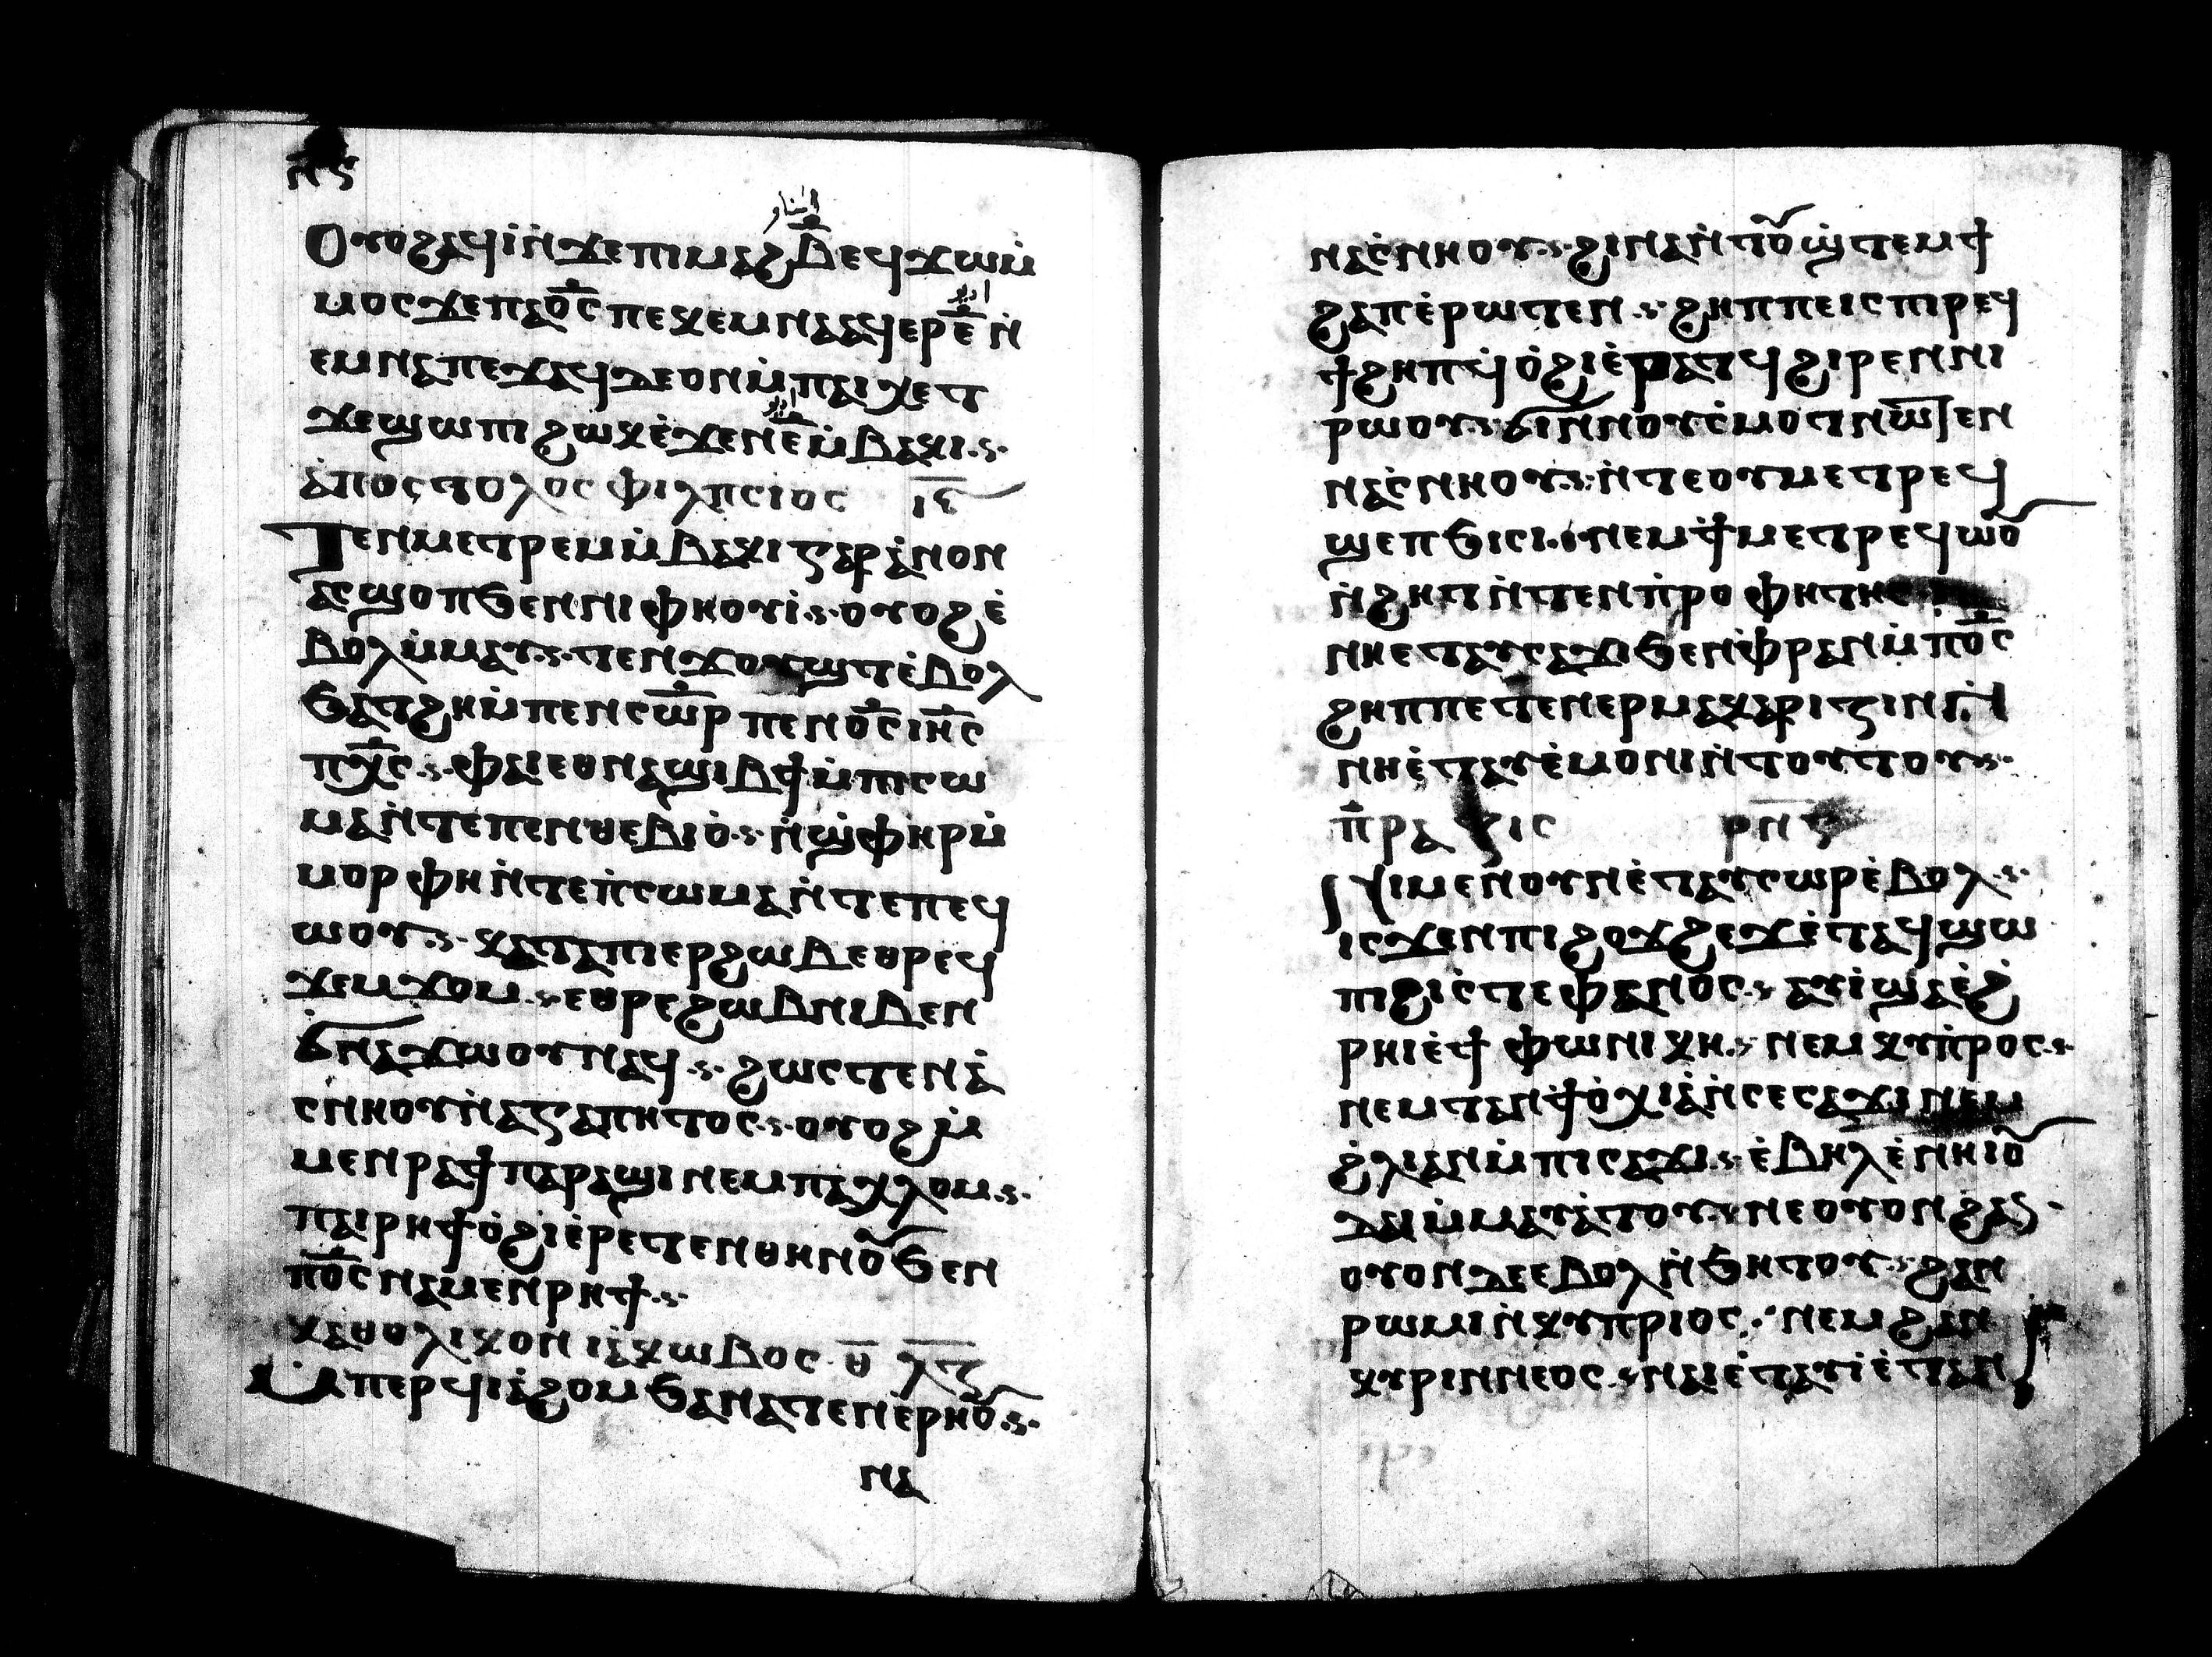 ⲡⲋ
Ⲟⲩⲟϩⲁϥⲓ̀ⲛ̀ϫⲉⲡⲓⲙⲁϩⲃ̅ⲉϥϫⲱⲙ̀
ⲙⲟⲥϫⲉⲡⲁⲟ̅ⲥ̅ⲡⲉⲕⲉⲙⲛⲁⲁϥⲉⲣⲉ̅ⲛ̀
ⲉⲙⲛⲁⲡⲉϫⲁϥⲇⲉⲟⲛⲙ̀ⲡⲁⲓⲭⲉⲧ
ϫⲉϣⲱⲡⲓϩⲱⲕⲉ̀ϫⲉⲛⲉ̅ⲙ̀ⲃⲁⲕⲓ
ⲁ̀ⲡⲟⲥⲧⲟⲗⲟⲥ ⲫⲓⲗⲡⲥⲓⲟⲥ ⲓ̅ⲋ̅
Ⲧⲉⲛⲙⲉⲧⲣⲉⲙⲙ̀ⲃⲁⲕⲓⲅⲁⲣⲁ̀ⲛⲟⲛ
ⲁⲥϣⲟⲡϧⲉⲛⲛⲓⲫⲏⲟⲩⲓ̀ ⲟⲩⲟϩⲉ̀
ⲃⲟⲗⲙ̀ⲙⲁⲩ ⲧⲉⲛϫⲟⲩϣⲧⲉ̀ⲃⲟⲗ
ϧⲁⲧϩⲏⲙ̀ⲡⲉⲛⲥⲱ̅ⲣ ⲡⲉⲛⲟ̅ⲥ̅ ⲓⲏ̅ⲥ
ⲡⲭ̅ⲥ ⲫⲁⲓⲉⲑⲛⲁϣⲓⲃϯⲙ̀ⲡⲓⲥⲱ
ⲙⲁⲛ̀ⲧⲉⲡⲉⲛⲑⲉⲃⲓⲟ̀ ⲛ̀ϣ̀ⲫⲏⲣⲙ̀
ⲙⲟⲣⲫⲏⲛ̀ⲧⲉⲡ̀ⲥⲱⲙⲁⲛ̀ⲧⲉⲡⲉϥ
ⲱⲟⲩ ⲕⲁⲧⲁⲡⲓⲉⲣϩⲱⲃⲉⲑⲣⲉϥ
ϫⲉⲙϫⲟⲙ ⲉⲑⲣⲉϩⲱⲃⲛⲓⲃⲉⲛ
ϭ̀ⲛⲁϫⲱⲟⲩⲛⲁϥ ϩⲱⲥⲧⲉⲛⲁ̀
ⲥⲛⲏⲟⲩⲛ̀ⲁⲅⲁⲡⲏⲧⲟⲥ ⲟⲩⲟϩⲙ̀
ⲙⲉⲛⲣⲁϯⲡⲁⲣⲁϣⲓⲛⲉⲙⲡⲁⲭⲗⲟⲙ
ⲡⲁⲓⲣⲏϯⲟ̀ϩⲓⲉ̀ⲣⲉⲧⲉⲛⲑⲏⲛⲟ̅ϧⲉⲛ
ⲡⲟ̅ⲥ̅ⲛⲁⲙⲉⲛⲣⲏϯ
ⲕⲁⲑⲟⲗⲓⲕⲟⲛ ⲓⲁ̀ⲕⲱⲃⲟⲥ ⲑ̅ ⲗ̅ⲍ̅
Ⲙ̀ⲡⲉⲣϥⲓⲁ̀ϩⲟⲙϧⲁⲛⲁⲧⲉⲛⲉ̀ⲣⲏⲟ̅
ⲛⲁ
ⲛⲁⲥ̀ⲛⲏⲟⲩ ϩⲓⲛⲁⲛ̀ⲧⲟ̅ϣ̀ⲧⲉⲙϯ
ϩⲁⲡⲉ̀ⲣⲱⲧⲉⲛ ϩⲏⲡⲡⲉⲓⲥⲡⲓⲣⲉϥ
ϯϩⲏⲡϥ̀ⲟ̀ϩⲓⲉ̀ⲣⲁⲧϥϩⲓⲣⲉⲛⲛⲓ
ⲣⲱⲟⲩ ϭⲓⲛⲛⲟⲩⲥ̀ⲙⲟⲧⲛⲱⲧⲉⲛ
ⲛⲁⲥ̀ⲛⲏⲟⲩ ⲛ̀ⲧⲉⲟⲩⲙⲉⲧⲣⲉϥ
ϣⲉⲡϧⲓⲥⲓ ⲛⲉⲙϯⲙⲉⲧⲣⲉϥⲱⲟ̅
ⲛ̀ϩⲏⲧⲛ̀ⲧⲉⲛⲡ̀ⲣⲟⲫⲏⲧⲏⲥ
ⲛⲏⲉⲧⲁⲩⲥⲁϫⲓϧⲉⲛⲫ̀ⲣⲁⲛⲙ̀ⲡⲟ̅ⲥ̅
ϩⲏⲡⲡⲉⲧⲉⲛⲉⲣⲙⲁⲕⲁⲣⲓⲍⲓⲛⲛ̀
ⲛⲏⲉ̀ⲧⲁⲩⲉ̀ⲙⲟⲛⲓⲛ̀ⲧⲟⲩⲧⲟⲩ
ⲡ̀ⲣⲁⲝⲓⲥ ⲣⲛ
Ⲛⲓⲙⲉⲛⲟⲩⲛⲉ̀ⲧⲁⲩⲥⲱⲣⲉ̀ⲃⲟⲗ
ⲓⲥϫⲉⲛⲡⲓϩⲟϫϩⲉϫⲉ̀ⲧⲁϥϣⲱ
ⲡⲓϩⲓⲥ̀ⲧⲉⲫⲁⲛⲟⲥ ⲁⲩⲓ̀ϣⲁⲉ̀ϩ̀
ⲣⲏⲓⲉ̀ϯⲫⲱⲛⲓⲕⲏ ⲛⲉⲙⲕⲩⲡ̀ⲣⲟⲥ
ⲛⲉⲙⲧⲁⲛϯⲟ̀ⲭⲓⲁ̀ⲛ̀ⲥⲉⲥⲁϫⲓⲛⲉⲙ
ϩ̀ⲗⲓⲁⲛⲙ̀ⲡⲓⲥⲁϫⲓ ⲉ̀ⲃⲏⲗⲉ̀ⲛⲏⲓⲟ̅
ⲇⲁⲓⲙ̀ⲙⲁⲩⲁ̀ⲧⲟⲩ ⲛⲉⲟⲩⲟⲛϩⲁⲛ
ⲟⲩⲟⲛⲇⲉⲉⲃⲟⲗⲛ̀ϧⲏⲧⲟⲩ ϩⲁⲛ
ⲣⲱⲙⲓⲛ̀ⲕⲩⲡⲣⲓⲟⲥ ⲛⲉⲙϩⲁⲛ
ⲕⲩⲣⲓⲛⲛⲉⲟⲥ ⲛⲁⲓⲉ̀ⲧⲁⲩⲓ̀ⲉ̀ⲧⲁⲛ